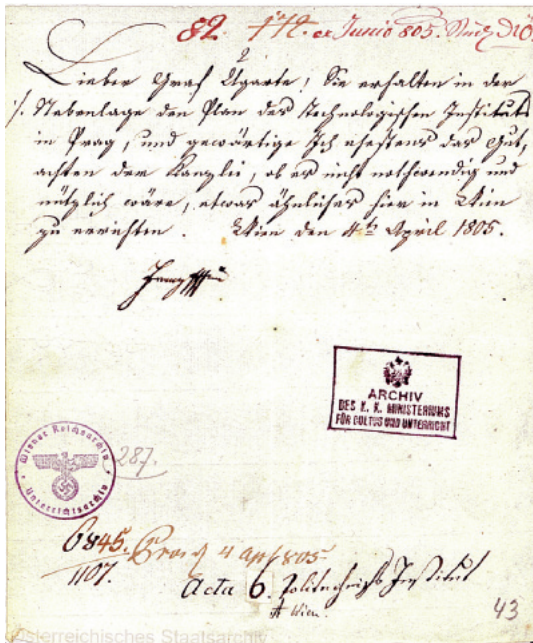 82. ex Junio 805.
Lieber Graf Ugarte! Sie erhalten in der
./. Nebenlage den Plan des technologischen Instituts
in Prag, und gewärtige Ich ehestens das Gut,
achten der Kanzlei, ob es nicht nothwendig und
nützlich wäre, etwas ähnliches hier in Wien
zu errichten. Wien den 4ten April 1805.
Franz
ARCHIV
DES K. K. MINISTERIUMS
FÜR CULTUS UND UNTERRICHT
Wiener Reichsarchiv
Unterrichtsarchiv
287.
6845. 4 Apl 805
1107.
Acta 6. Politechnisch Institut
Wien.
43
Österreichisches Staatsarchiv